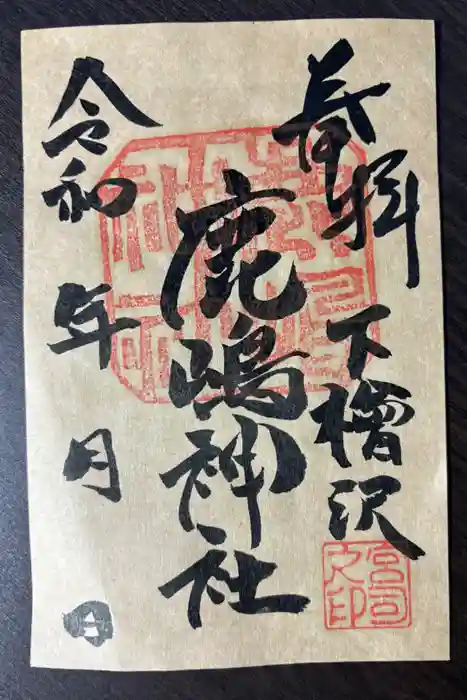 奉拝
下檜沢
鹿嶋神社
令和 年 月 日
宮司之印